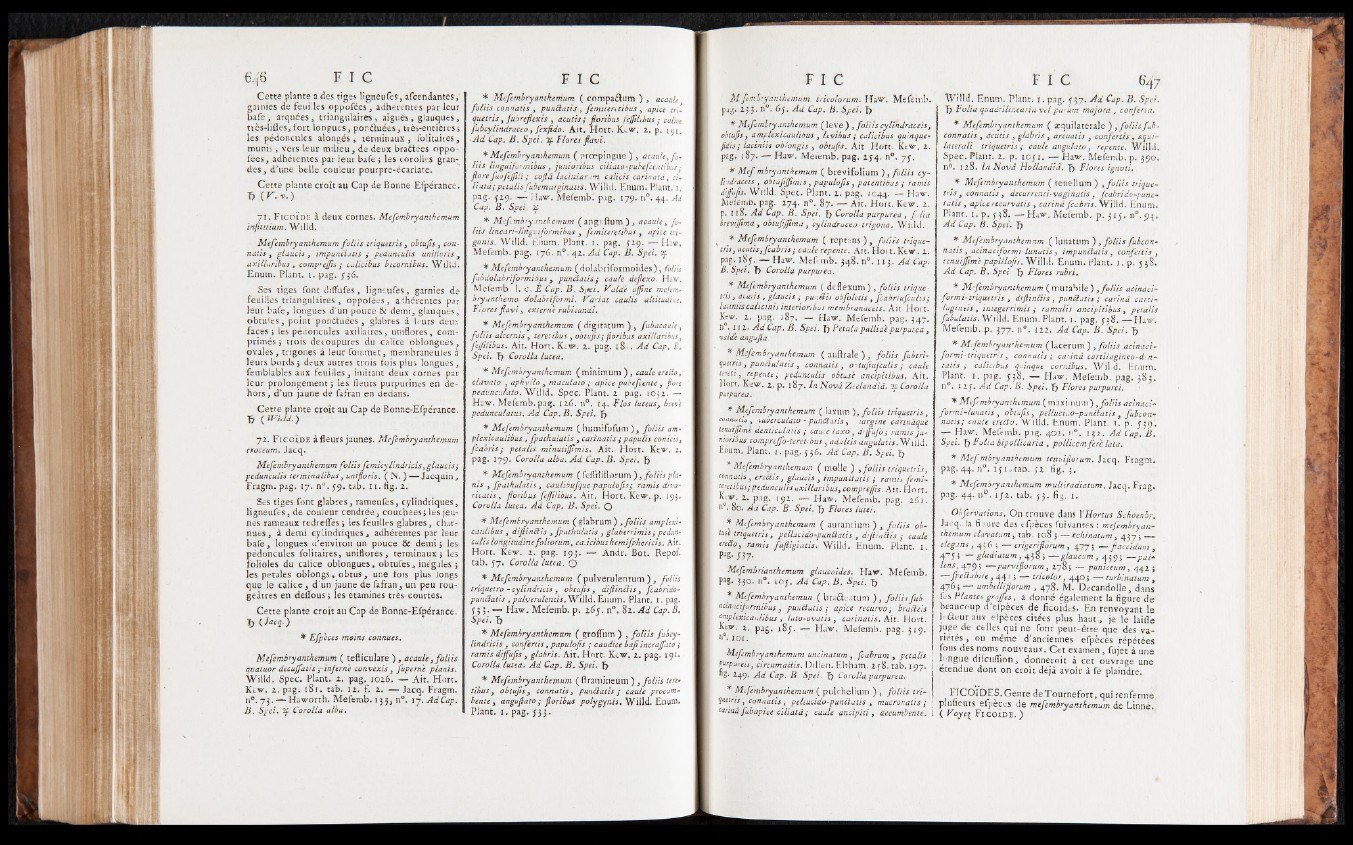 646 FIC
Cette plante a des tiges ligneuses, ascendantes,
garnies de feuilles opposées, adhérentes par leur
base, arquées, triangulaires, aiguës, glauques,
très-lisses, fort longues, ponctuées, très-entières;
les pédoncules alongés, terminaux, solitaires,
munis, vers leur milieu, de deux bractées oppo-
sées, adhérentes par leur base; les corolles gran-
des, d'une belle couleur pourpre-écarlate.
Cette plante croît au Cap de Bonne-Espérance.
♄ (V. v.)
71. FICOÏDE à deux cornes. Mesembryanthemum
Willd.
Mesembryanthemum foliis triquetris, obtusis, con-
natis, glaucis, impunctatis; pedunculis unifloris,
axillaribus, compressis; calicibus bicornibus. Willd.
Enum. Plant. 1. pag. 536.
Ses tiges sont diffuses, ligneuses, garnies de
feuilles triangulaires, opposées, adhérentes par
leur base, longues d'un pouce & demi, glauques,
obtuses, point ponctuées, glabres à leurs deux
faces; les pédoncules axillaires, uniflores, com-
primés; trois découpures du calice oblongues,
ovales, trigones à leur sommet, membraneuses à
leurs bords; deux autres trois fois plus longues,
semblables aux feuilles, imitant deux cornes par
leur prolongement; les fleurs purpurines en de-
hors, d'un jaune de safran en dedans.
Cette plante croît au Cap de Bonne-Espérance.
♄ (Willd.)
72. FICOÏDE à fleurs jaunes. Mesembryanthemum
croceum. Jacq.
Mesembryanthemum foliis semicylindricis, glaucis;
pedunculis terminalibus, unifloris. (N.) — Jacquin,
Fragm. pag. 17. n°. 59. tab. 11. fig. 2.
Ses tiges sont glabres, rameuses, cylindriques,
ligneuses, de couleur cendrée, couchées; les jeu-
nes rameaux redressés; les feuilles glabres, char-
nues, à demi cylindriques, adhérentes par leur
base, longues d'environ un pouce & demi; les
pédoncules solitaires, uniflores, terminaux; les
folioles du calice oblongues, obtuses, inégales;
les petales oblongs, obtus, une fois plus longs
que le calice, d'un jaune de safran, un peu rou-
geâtres en dessous; les étamines très-courtes.
Cette plante croît au Cap de Bonne-Espérance.
♄ (Jacq.)
* Espèces moins connues.
Mesembryanthemum (testiculare), acaule, foliis
quatuor decussatis, infernè convexis, supernè planis.
Willd. Spec. Plant. 2. pag. 1026. — Ait. Hort.
Kew. 2. pag. 181. tab. 12. f. 2. — Jacq. Fragm.
n°. 73. — Haworth. Mesemb. 135, n°. 17. Ad Cap.
B. Spei. ♃ Corolla alba.
FIC
* Mesembryanthemum (compactum), acaule,
foliis connatis, punctatis, semiteretibus, apice tri-
quetris, subreflexis, acutis; floribus sessilibus; calice
subcylindraceo, sexfido. Ait. Hort. Kew. 2. p. 191.
Ad Cap. B. Spei. ♃ Flores flavi.
* Mesembryanthemum (præpingue), acaule, fo-
liis linguiformibus, junioribus ciliato-pubescentibus;
flore subsessili; costâ laciniarum calicis carinatâ, ci-
liatâ; petalis subemarginatis. Willd. Enum. Plant. 1.
pag. 529. — Haw. Mesemb. pag. 179. n°. 44. Ad
Cap. B. Spei. ♃
* Mesembryanthemum (angustum), acaule, fo-
liis lineari-linguæformibus, semiteretibus, apice tri-
gonis. Willd. Enum. Plant. 1. pag. 529. — Haw.
Mesemb. pag. 176. n°. 42. Ad Cap. B. Spei. ♃
* Mesembryanthemum (dolabriformoides), foliis
subdolabriformibus, punctatis; caule deflexo. Haw.
Mesemb. l. c. È Cap. B. Spei. Valdè affine mesem-
bryanthemo dolabriformi. Variat caulis altitudine.
Flores flavi, externè rubicundi.
* Mesembryanthemum (digitatum), subacaule,
foliis alternis, teretibus, obtusis; floribus axillaribus,
sessilibus. Ait. Hort. Kew. 2. pag. 181. Ad Cap. B.
Spei. ♄ Corolla lutea.
* Mesembryanthemum (minimum), caule erecto,
clavato, aphyllo, maculato; apice pubescente, flore
pedunculato. Willd. Spec. Plant. 2. pag. 1032. —
Haw. Mesemb. pag. 126. n°. 14. Flos luteus, brevi
pedunculatus. Ad Cap. B. Spei. ♄
* Mesembryanthemum (humifusum), foliis am-
plexicaulibus, spathulatis, carinatis; papulis conicis,
scabris; petalis minutissimis. Ait. Hort. Kew. 2.
pag. 179. Corolla alba. Ad Cap. B. Spei. ♄
* Mesembryanthemum (sessiliflorum), foliis pla-
nis, spathulatis, caulibusque papulosis; ramis diva-
ricatis, floribus sessilibus. Ait. Hort. Kew. p. 193.
Corolla lutea. Ad Cap. B. Spei. ☉
* Mesembryanthemum (glabrum), foliis amplexi-
caulibus, distinctis, spathulatis, glaberrimis; pedun-
culis longitudine foliorum, calicibus hemisphericis. Ait.
Hort. Kew. 2. pag. 193. — Andr. Bot. Repos.
tab. 57. Corolla lutea. ☉
* Mesembryanthemum (pulverulentum), foliis
triquetro-cylindricis, obtusis, distinctis, scabrido-
punctatis, pulverulentis. Willd. Enum. Plant. 1. pag.
533. — Haw. Mesemb. p. 265. n°. 82. Ad Cap. B.
Spei. ♄
* Mesembryanthemum (grossum), foliis subcy-
lindricis, confertis, papulosis; caudice basi incrassato;
ramis diffusis, glabris. Ait. Hort. Kew. 2. pag. 191.
Corolla lutea. Ad Cap. B. Spei. ♄
* Mesembryanthemum (stramineum), foliis tere-
tibus, obtusis, connatis, punctatis; caule procum-
bente, angustato; floribus polygynis. Willd. Enum.
Plant. 1. pag. 533.
FIC
Mesembryanthemum tricolorum. Haw. Mesemb.
pag. 233. n°. 65. Ad Cap. B. Spei. ♄
* Mesembryanthemum (leve), foliis cylindraceis,
obtusis, amplexicaulibus, levibus; calicibus quinque-
fidis; laciniis oblongis, obtusis. Ait Hort. Kew. 2.
pag. 187. — Haw. Mesemb. pag. 254. n°. 75.
* Mesembryanthemum (brevifolium), foliis cy-
lindraceis, obtusissimis, papulosis, patentibus; ramis
diffusis. Willd. Spec. Plant. 2. pag. 1044. — Haw.
Mesemb. pag. 274. n°. 87. — Ait. Hort. Kew. 2.
p. 118. Ad Cap. B. Spei. ♄ Corolla purpurea, folia
brevissima, obtusissima, cylindraceo-trigona. Willd.
* Mesembryanthemum (reptans), foliis trique-
tris, acutis, scabris; caule repente. Ait. Hort. Kew. 2.
pag. 185. — Haw. Mesemb. 348. n°. 113. Ad Cap.
B. Spei. ♄ Corolla purpurea.
* Mesembryanthemum (deflexum), foliis trique-
tris, acutis, glaucis; punctis obsoletis, scabriusculis;
laciniis calicinis interioribus membranaceis. Ait. Hort.
Kew. 2. pag. 187. — Haw. Mesemb. pag. 347.
n°. 112. Ad Cap. B. Spei. ♄ Petala pallidè purpurea,
valdè angusta.
* Mesembryanthemum (australe), foliis subtri-
quetris, punctatis, connatis, obtusiusculis; caule
tereti, repente, pedunculis obtusè ancipitibus. Ait.
Hort. Kew. 2. p. 187. In Novâ Zeelandiâ. ♃ Corolla
purpurea.
* Mesembryanthemum (laxum), foliis triquetris,
connatis, tuberculato-punctatis, margine carinâque
tenuissimè denticulatis; caule laxo, diffuso; ramis ju-
nioribus compresso-teretibus, adultis angulatis. Willd.
Enum. Plant. 1. pag. 536. Ad Cap. B. Spei. ♄
* Mesembryanthemum (molle), foliis triquetris,
connatis, erectis, glaucis, impunctatis; ramis semi-
teretibus; pedunculis axillaribus, compressis. Ait. Hort.
Kew. 2. pag. 192. — Haw. Mesemb. pag. 261.
n°. 80. Ad Cap. B. Spei. ♄ Flores lutei.
* Mesembryanthemum (aurantium), foliis ob-
tusè triquetris, pellucido-punctatis, distinctis; caule
erecto, ramis fastigiatis. Willd. Enum. Plant. 1.
pag. 537.
Mesembrianthemum glaucoides. Haw. Mesemb.
pag. 330. n°. 105. Ad Cap. B. Spei. ♄
* Mesembryanthemum (bracteatum), foliis sub-
acinaciformibus, punctatis; apice recurvo; bracteis
amplexicaulibus, lato-ovatis, carinatis. Ait. Hort.
Kew. 2. pag. 185. — Haw. Mesemb. pag. 319.
n°. 101.
Mesembryanthemum uncinatum, scabrum, petalis
purpureis, circumactis. Dillen. Eltham. 258. tab. 197.
fig. 249. Ad Cap. B. Spei. ♄ Corolla purpurea.
* Mesembryanthemum (pulchellum), foliis tri-
quetris, connatis, pellucido-punctatis, mucronatis;
carinâ subapice ciliatâ; caule ancipiti, decumbente.
FIC 647
Willd. Enum. Plant. 1. pag. 537. Ad Cap. B. Spei.
♄ Folia quadrilinearia vel paulùm majora, conferta.
* Mesembryanthemum (æquilaterale), foliis sub-
connatis, acutis, glabris, arcuatis, confertis, æqui-
laterali triquetris; caule angulato, repente. Willd.
Spec. Plant. 2. p. 1051. — Haw. Mesemb. p. 390.
n°. 128. In Novâ Hollandiâ. ♄ Flores ignoti.
* Mesembryanthemum (tenellum), foliis trique-
tris, connatis, decurrenti-vaginatis, scabrido-punc-
tatis, apice recurvatis, carinâ scabris. Willd. Enum.
Plant. 1. p. 538. — Haw. Mesemb. p. 315. n°. 94.
Ad Cap. B. Spei. ♄
* Mesembryanthemum (lunatum), foliis subcon-
natis, acinaciformi-lunatis, impunctatis, confertis,
tenuissimè papillosis. Willd. Enum. Plant. 1. p. 538.
Ad Cap. B. Spei ♄ Flores rubri.
* Mesembryanthemum (mutabile), foliis acinaci-
formi-triquetris, distinctis, punctatis; carinâ carti-
lagineis, integerrimis; ramulis ancipitibus, petalis
subulatis. Willd. Enum. Plant. 1. pag. 538. — Haw.
Mesemb. p. 377. n°. 122. Ad Cap. B. Spei. ♄
* Mesembryanthemum (lacerum), foliis acinaci-
formi-triquetris, connatis; carinâ cartilagineo-den-
tatis, calicibus quinque cornibus. Willd. Enum.
Plant. 1. pag. 538. — Haw. Mesemb. pag. 383.
n°. 125. Ad Cap. B. Spei. ♄ Flores purpurei.
* Mesembryanthemum (maximum), foliis acinaci-
formi-lunatis, obtusis, pellucido-punctatis, subcon-
natis; caule erecto. Willd. Enum. Plant. 1. p. 539.
— Haw. Mesemb. pag. 402. n°. 132. Ad Cap. B.
Spei. ♄ Folia bipollicaria, pollicem ferè lata.
* Mesembryanthemum tenuiflorum. Jacq. Fragm.
pag. 44. n°. 151. tab. 52. fig. 3.
* Mesembryanthemum multiradiatum. Jacq. Frag.
pag. 44. n°. 152. tab. 53. fig. 1.
Observations. On trouve dans l'Hortus Schoenbr.
Jacq. la figure des espèces suivantes: mesembryan-
themum clavatum, tab. 108; — echinatum, 437; —
elegens, 436; — crigeriflorum, 477; — flaccidum,
475; — gladiatum, 438; — glaucum, 439; — pal-
lens, 479; — parviflorum, 278; — puniceum, 442;
— spectabile, 441; — tricolor, 440; — turbinatum,
476; — umbelliflorum, 478. M. Decandolle, dans
ses Plantes grasses, a donné également la figure de
beaucoup d'espèces de ficoïdes. En renvoyant le
lecteur aux espèces citées plus haut, je le laisse
juge de celles qui ne sont peut-être que des va-
riétés, ou même d'anciennes espèces répétées
sous des noms nouveaux. Cet examen, sujet à une
longue discussion, donneroit à cet ouvrage une
étendue dont on croit déjà avoir à se plaindre.
FICOÏDES. Genre de Tournefort, qui renferme
plusieurs espèces de mesembryanthemum de Linné.
(Voyez FICOÏDE.)